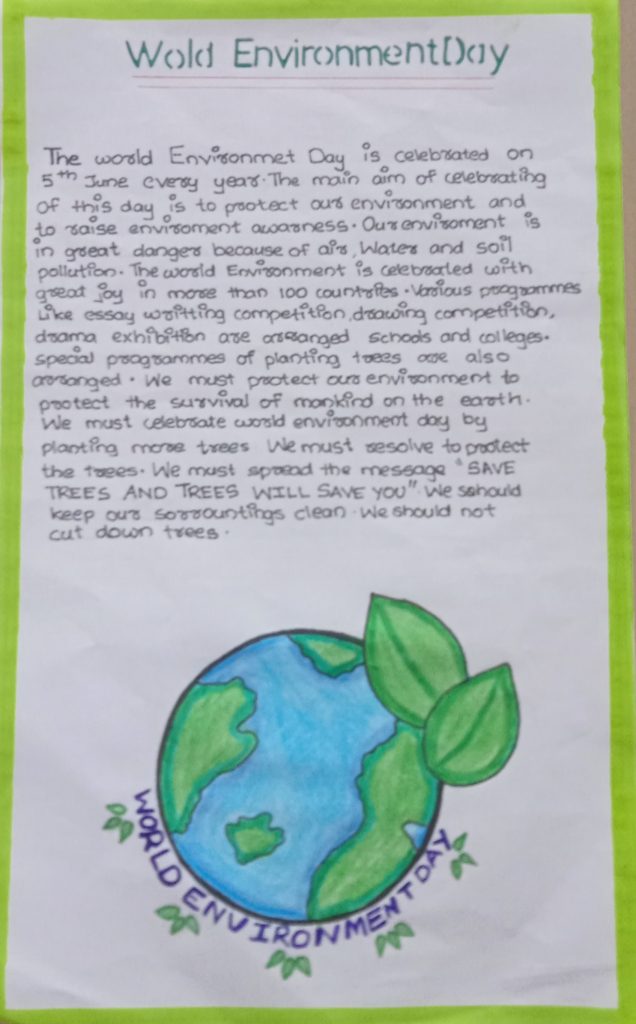 Wold Environment Day
The world Environmet Day is celebrated on
5th June every year. The main aim of celebrating
of this day is to protect our environment and
to raise enviroment awarness. Our enviroment is
in great danger because of air, Water and soil
pollution. The world Environment is celebrated with
great joy in more than 100 countries. Various programmes
Like essay writting competition, drawing competition,
drama exhibition are arranged schools and colleges.
special programmes of planting trees are also
arranged. We must protect our environment to
protect the survival of mankind on the earth.
We must celebrate world environment day by
planting more trees We must resolve to protect
the trees. We must spread the message "SAVE
TREES AND TREES WILL SAVE YOU". We sshould
keep our sorrountings clean. We should not
cut down trees.
WORLD ENVIRONMENT DAY